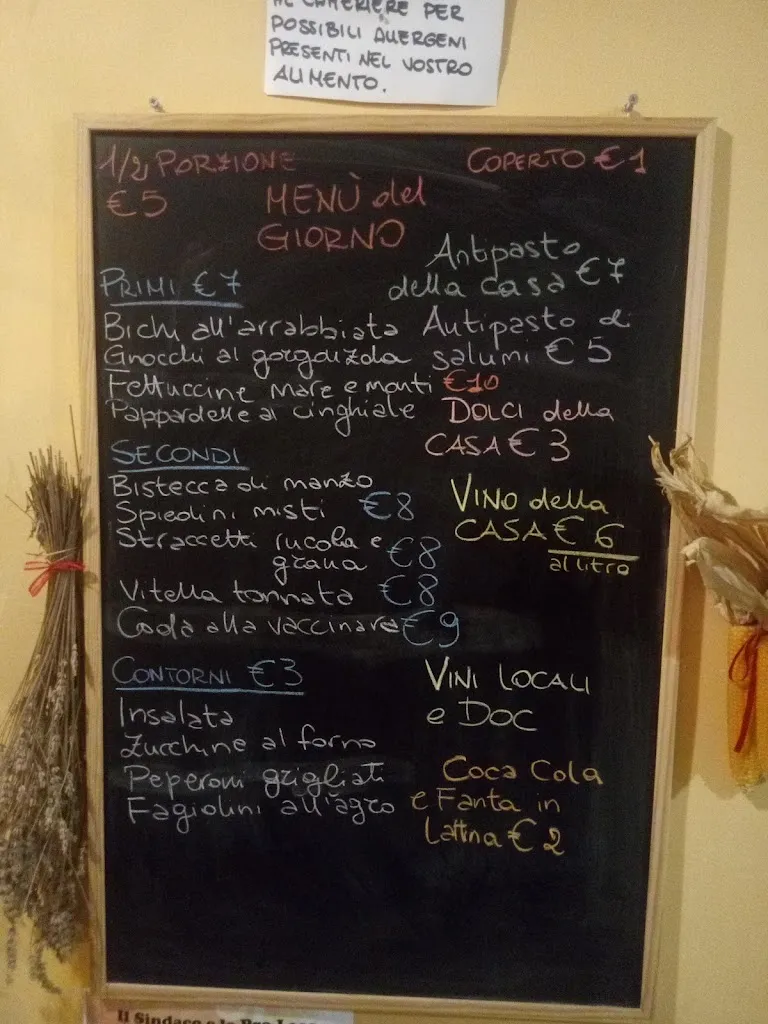 AL CAMERIERE PER
POSSIBILI ALLERGENI
PRESENTI NEL VOSTRO
ALIMENTO.
1/2 PORZIONE
€ 5
COPERTO € 1
MENÙ del
GIORNO
PRIMI € 7
Bichi all'arrabbiata
Gnocchi al gorgonzola
Fettuccine mare e monti € 10
Pappardelle al cinghiale
SECONDI
Bistecca di manzo
Spiedini misti € 8
Straccetti rucola e
grana € 8
Vitella tonnata € 8
Coda alla vaccinara € 9
CONTORNI € 3
Insalata
Zucchine al forno
Peperoni grigliati
Fagiolini all'agro
Antipasto
della casa € 7
Antipasto di
salumi € 5
DOLCI della
CASA € 3
VINO della
CASA € 6
al litro
VINI LOCALI
e DOC
Coca Cola
e Fanta in
Lattina € 2
Il Sindaco e la Pro Loco